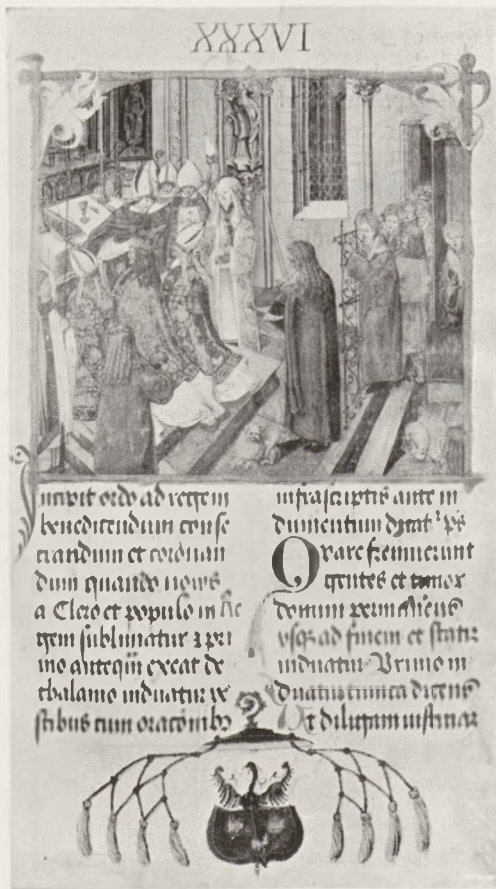 XXXVI
Incipit ordo ad regem
benedicendum conse
crandum et coronan
dum quando novus
a Clero et populo in Re
gem sublimatur ⁊ pri
mo anteqͣ exeat de
thalamo induatur ve
stibus cum oracōnibꝫ
infrascriptis ante in
dumentum dicat᷑ ps
Quare fremuerunt
gentes et
domini
usqꝫ ad finem et statim
induatur Primo in
duatur tunica dicens
Ut diligam iusticiaꝫ